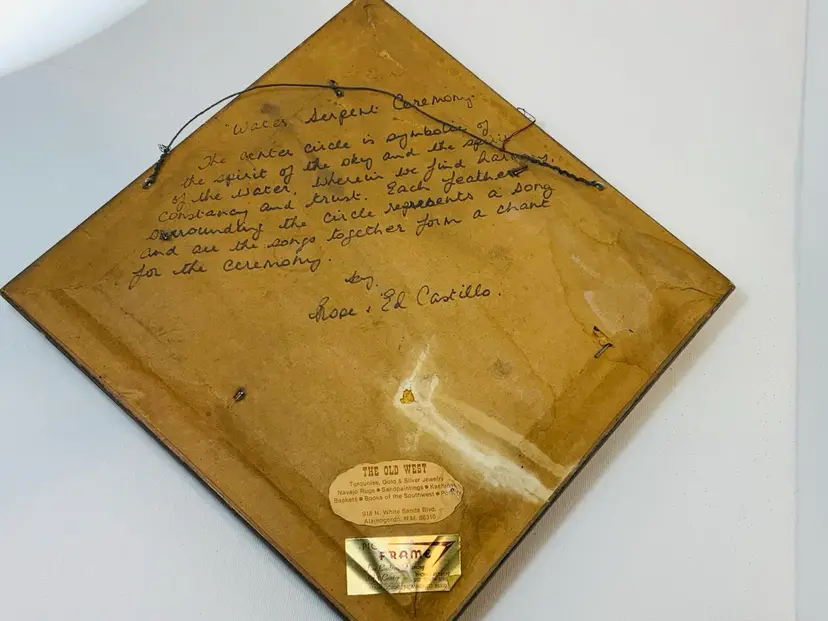 "Water Serpent Ceremony"
The center circle is symbolic of
the spirit of the sky and the spirit
of the water. Wherein we find harmony,
constancy and trust. Each feather
surrounding the circle represents a song
and all the songs together form a chant
for the ceremony.
by.
Rose & Ed Castillo.
THE OLD WEST
Turquoise, Gold & Silver Jewelry
Navajo Rugs • Sandpaintings • Kachinas
Baskets • Books of the Southwest •
918 N. White Sands Blvd.
Alamogordo, N.M. 88310
FRAME